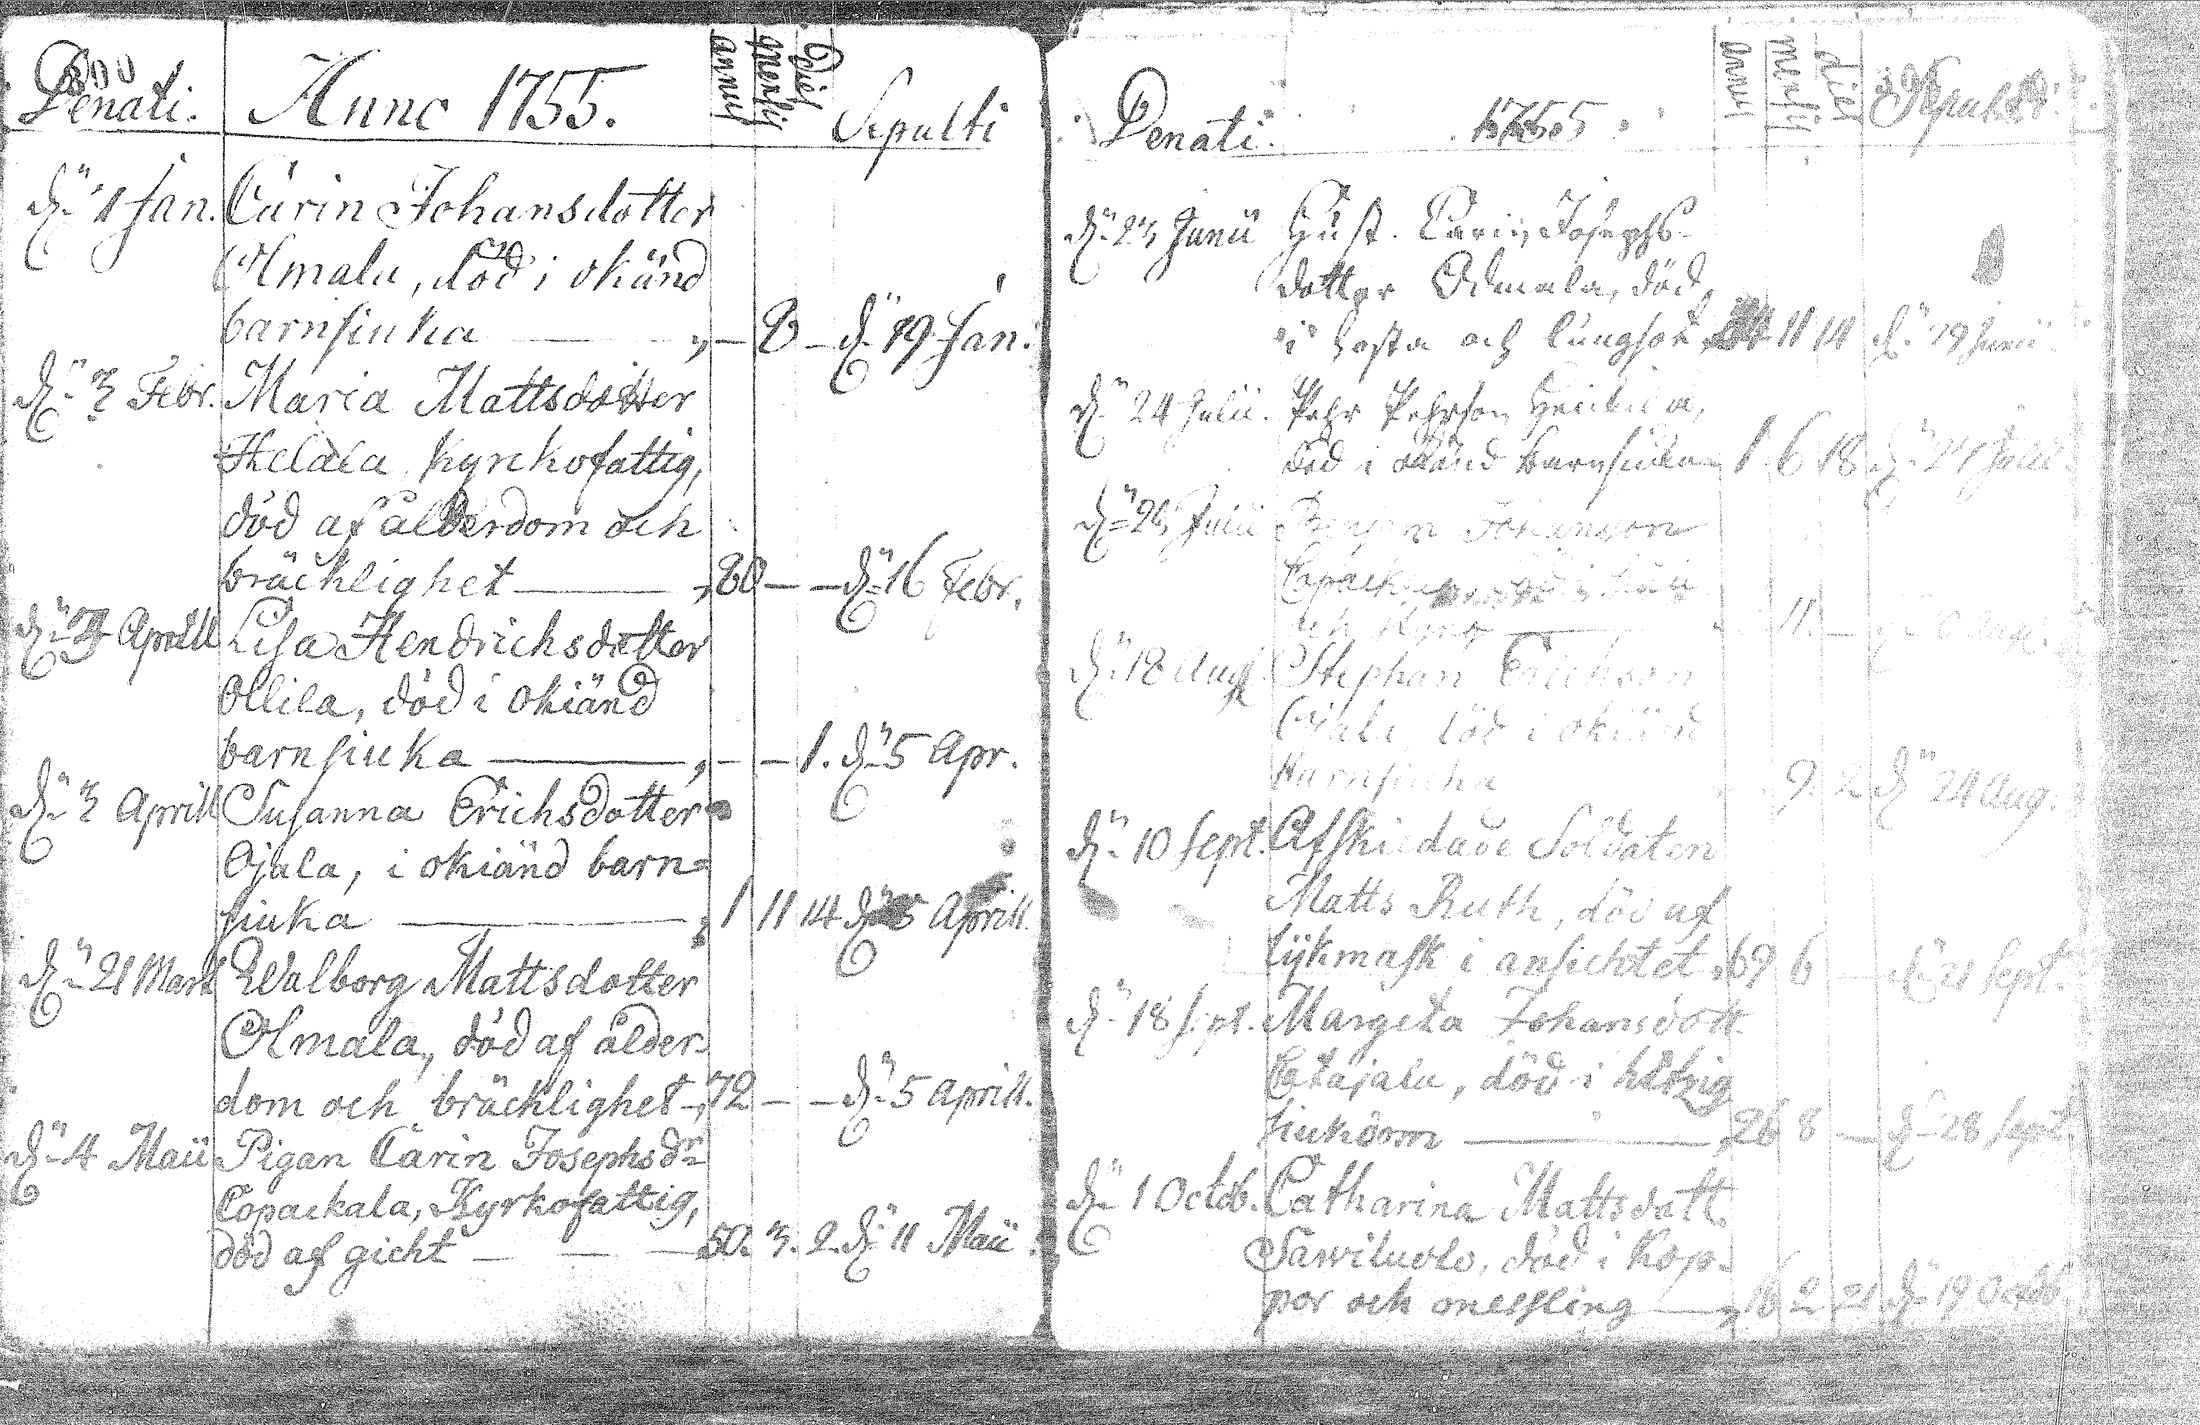 Denati. Anno 1755. annus mensis dies Sepulti
dn 11 Jan. Carin Johansdotter
Olmala, död i okänd
barnsiuka — „ — 8 — dn 19 Jan.
dn 3 Febr. Maria Mattsdotter
Helala Kyrkofattig,
död af ålderdom och
bräcklighet — „ 80 — — dn 16 Febr.
dn Aprill Lisa Hendrichsdotter
Ollila, död i okiänd
barnsiuka — „ — — 1. dn 5 Apr.
dn 3 Aprill Susanna Erichsdotter
Ojala, i okiänd barn=
siuka — „ 1 11 14 dn 5 Aprill.
dn 21 Mart Walborg Mattsdotter
Olmala, död af ålder-
dom och bräcklighet „ 72 — — dn 5 Aprill.
dn 4 Maii Pigan Carin Josephsdr
Copackala, Kyrkofattig,
död af gicht — 50. 3. 2. dn 11 Maii
Denati. 1755. annus mensis dies Sepulti
dn 23 Junii Hust. Carin Josephs-
dotter Odmala, död
i hosta och lungsot 11 14 dn 29 Junii
dn 24 Julii. Pehr Pehrson
död i okänd barnsiuka 1 6 18 dn 27 Julii
Julii Johanson
och — 11. — Aug.
dn 18 Aug. Stephan Erichson
Ojala död i okiänd
barnsiuka 9 2 dn 24 Aug.
dn 10 Sept. Afskiedade Soldaten
Matts Ruth, död af
lijkmask i ansichtet „ 69 6 — dn 21 Sept.
dn 18 Sept. Margeta Johansdott.
Catajala, död i hitzig
siukdom — „ 26 8 — dn 28 Sept
dn 1 Octob. Catharina Mattsdott.
Sawiluoto, död i Kop-
por och messling — „ 16 2 21 dn 19 Octob.